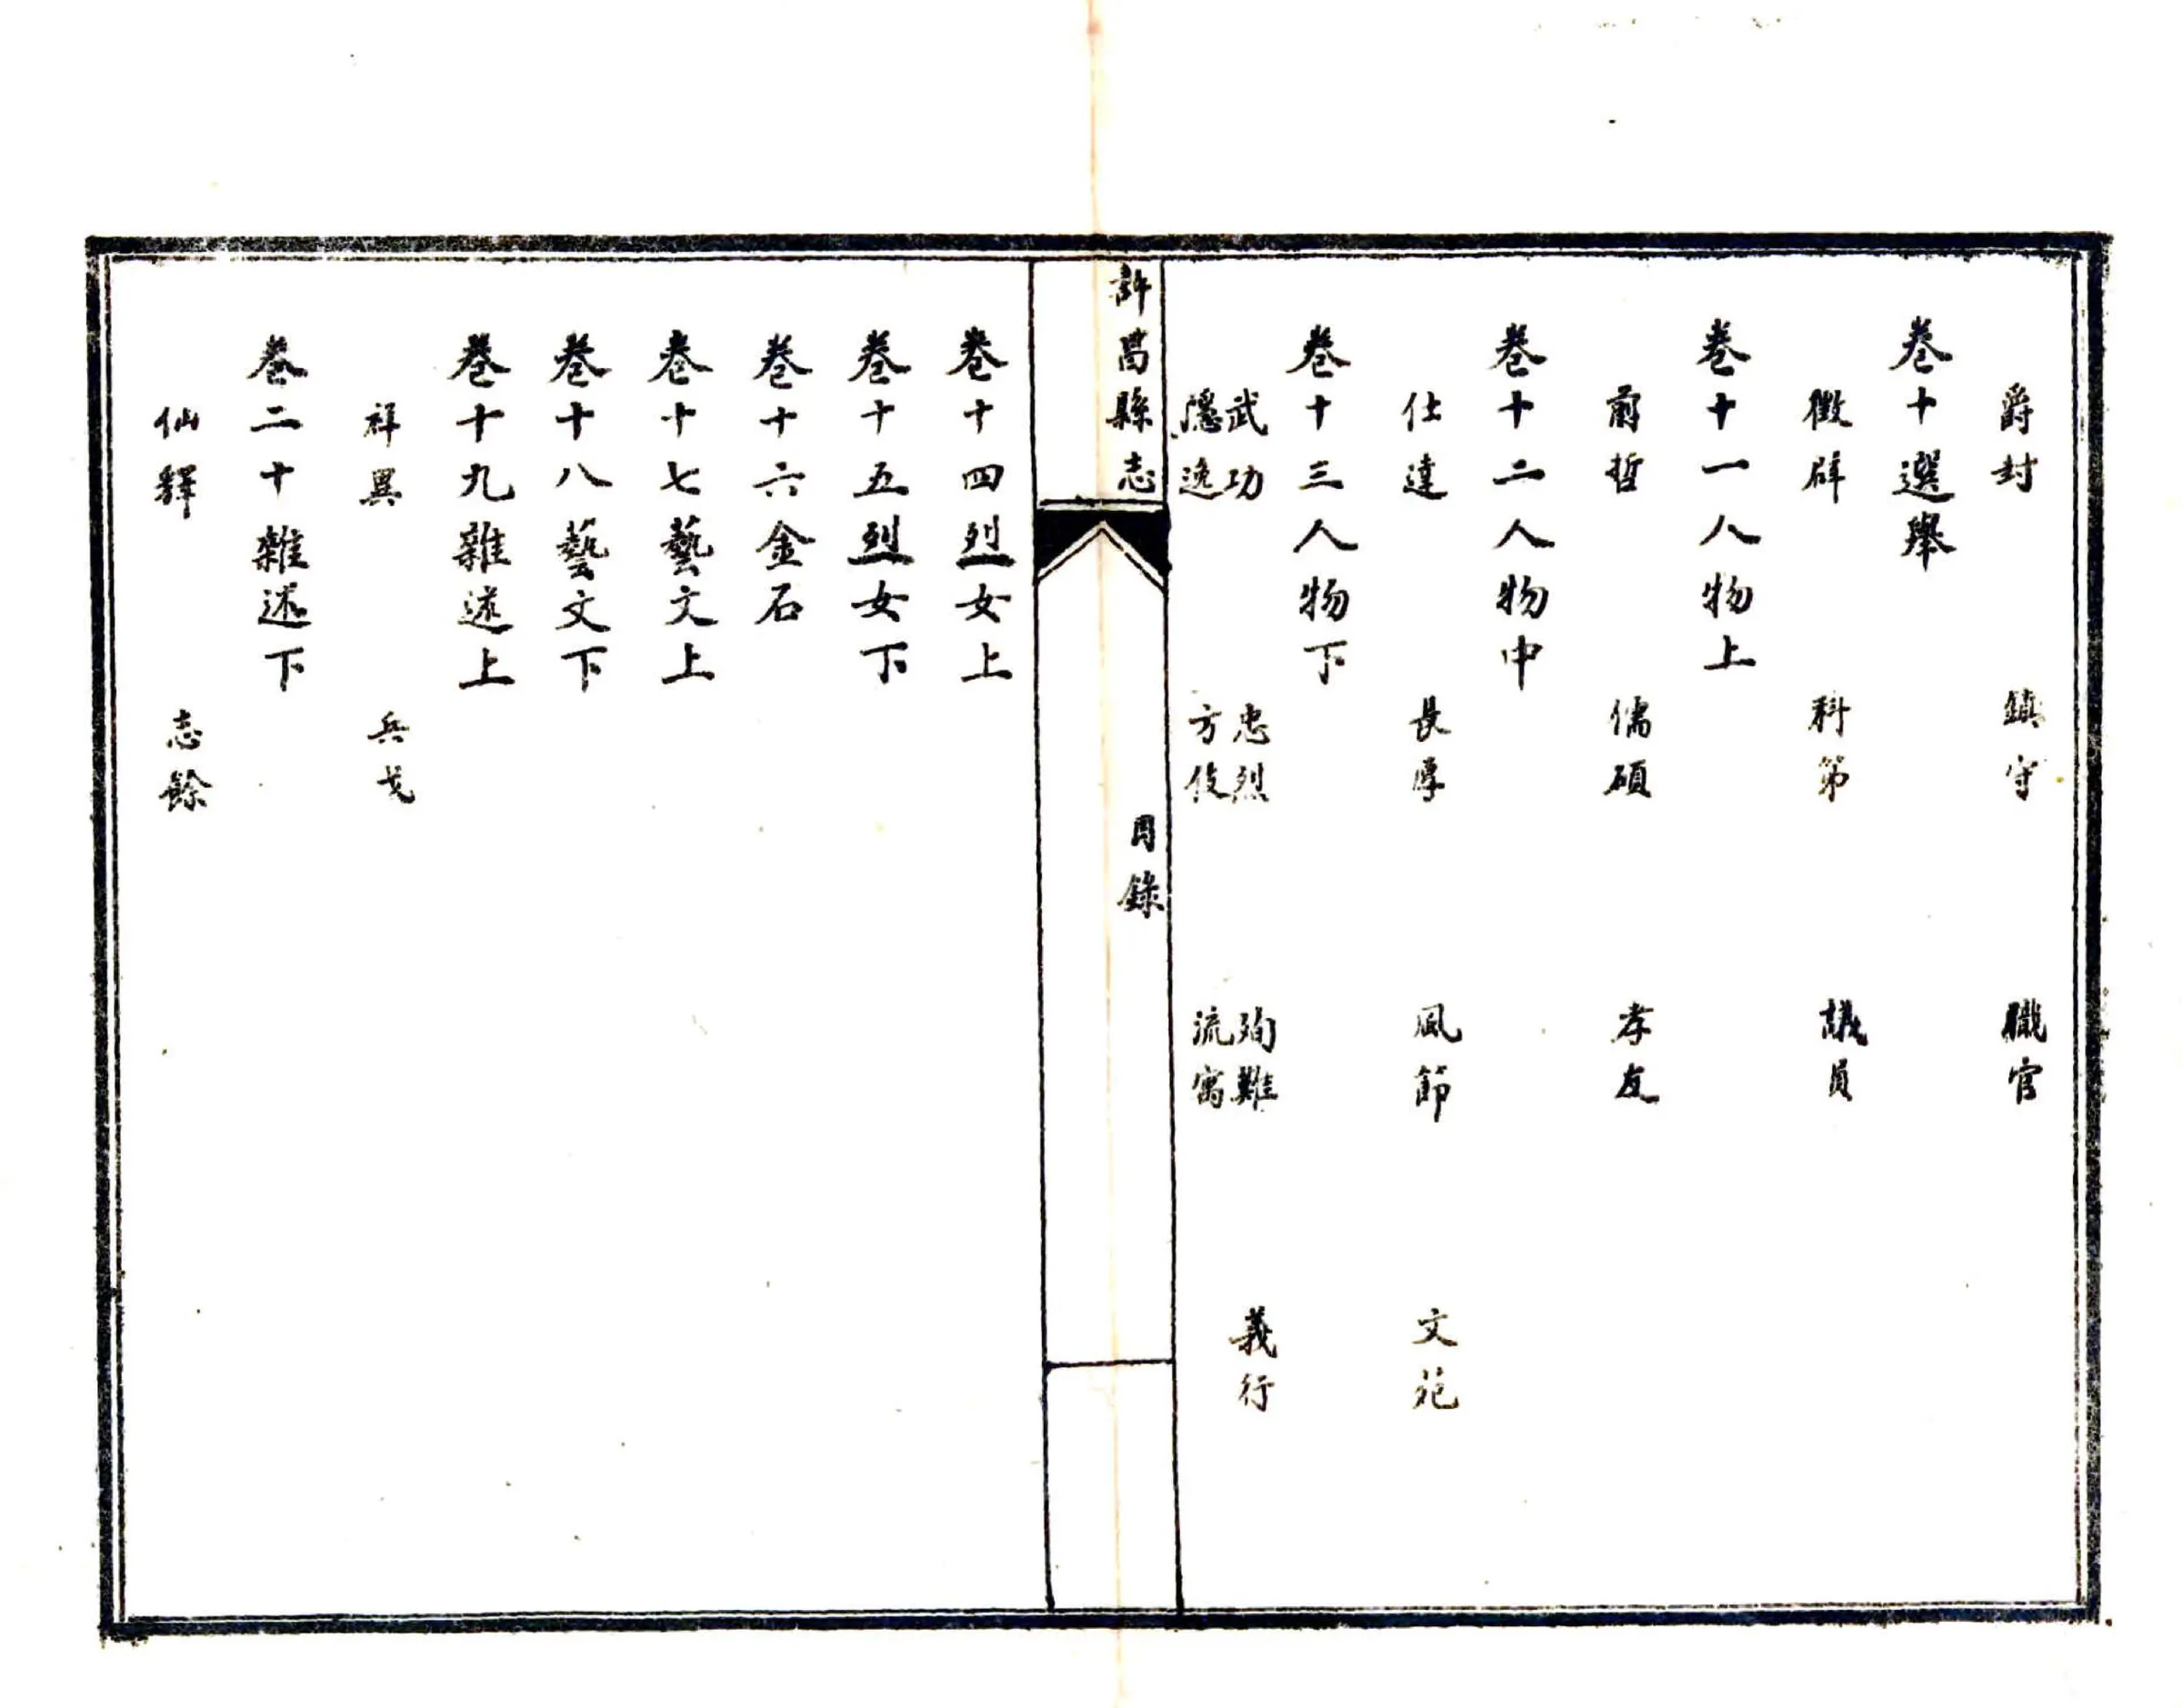 爵封 鎮守 職官
卷十選舉
徵辟 科第 議員
卷十一人物上
前哲 儒碩 孝友
卷十二人物中
仕達 長厚 風節 文苑
卷十三人物下
武功 忠烈 殉難 義行
隱逸 方伎 流寓
許昌縣志
目錄
卷十四烈女上
卷十五烈女下
卷十六金石
卷十七藝文上
卷十八藝文下
卷十九雜述上
祥異 兵戈
卷二十雜述下
仙釋 志餘